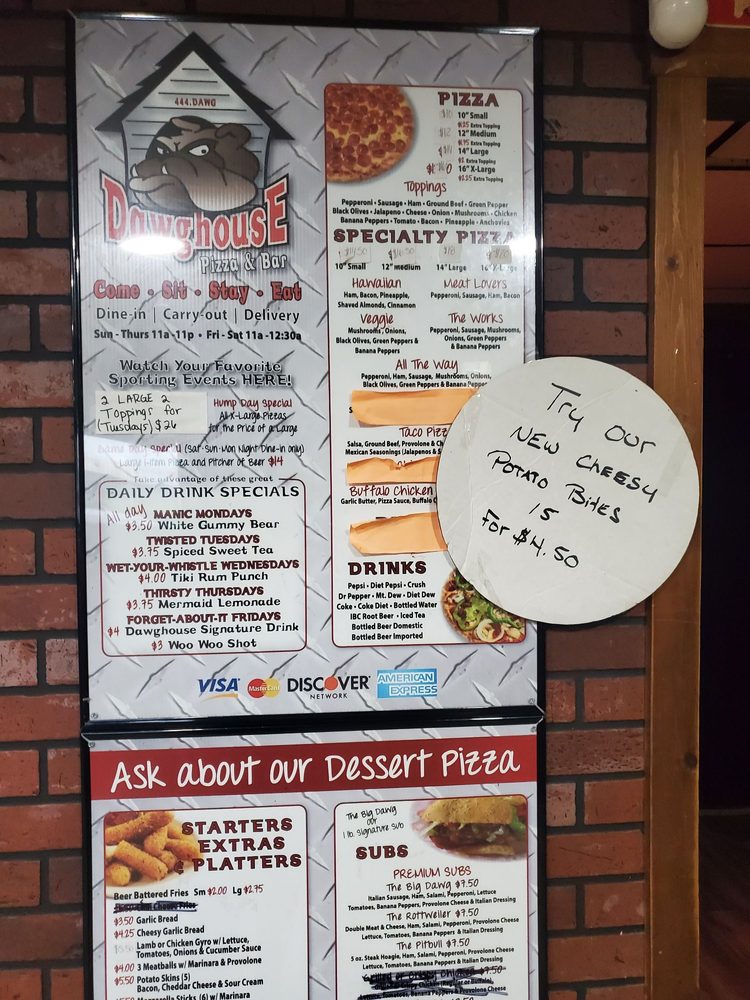 444.DAWG
DawghousE
Pizza & Bar
Come • Sit • Stay • Eat
Dine-in | Carry-out | Delivery
Sun - Thurs 11a -11p • Fri - Sat 11a -12:30a
Watch Your Favorite
Sporting Events HERE!
2 LARGE 2
Toppings for
(Tuesdays) $26
Hump Day Special
All X-Large Pizzas
for the Price of a Large
Game Day Special (Sat • Sun • Mon Night Dine-in only)
Large 1-Item Pizza and Pitcher of Beer $14
Take advantage of these great
DAILY DRINK SPECIALS
All day
MANIC MONDAYS
$3.50 White Gummy Bear
TWISTED TUESDAYS
$3.75 Spiced Sweet Tea
WET-YOUR-WHISTLE WEDNESDAYS
$4.00 Tiki Rum Punch
THIRSTY THURSDAYS
$3.75 Mermaid Lemonade
FORGET-ABOUT-IT FRIDAYS
$4 Dawghouse Signature Drink
$3 Woo Woo Shot
PIZZA
10" Small
$1.25 Extra Topping
$12 12" Medium
$1.75 Extra Topping
14" Large
$2 Extra Topping
16" X-Large
$2.25 Extra Topping
Toppings
Pepperoni • Sausage • Ham • Ground Beef • Green Pepper
Black Olives • Jalapeno • Cheese • Onion • Mushrooms • Chicken
Banana Peppers • Tomato • Bacon • Pineapple • Anchovies
SPECIALTY PIZZA
10" Small 12" medium 14" Large 16" X-Large
Hawaiian
Ham, Bacon, Pineapple,
Shaved Almonds, Cinnamon
Meat Lovers
Pepperoni, Sausage, Ham, Bacon
Veggie
Mushrooms, Onions,
Black Olives, Green Peppers &
Banana Peppers
The Works
Pepperoni, Sausage, Mushrooms,
Onions, Green Peppers
& Banana Peppers
All The Way
Pepperoni, Ham, Sausage, Mushrooms, Onions,
Black Olives, Green Peppers & Banana Peppers
Taco Pizz
Salsa, Ground Beef, Provolone & Ch
Mexican Seasonings (Jalapenos & S
Buffalo Chicken
Garlic Butter, Pizza Sauce, Buffalo C
DRINKS
Pepsi • Diet Pepsi • Crush
Dr Pepper • Mt. Dew • Diet Dew
Coke • Coke Diet • Bottled Water
IBC Root Beer • Iced Tea
Bottled Beer Domestic
Bottled Beer Imported
Try Our
NEW CHEESY
POTATO BITES
IS
FOR $4.50
VISA MasterCard DISCOVER NETWORK AMERICAN EXPRESS
Ask about our Dessert Pizza
STARTERS
EXTRAS
& PLATTERS
Beer Battered Fries Sm $2.00 Lg $2.75
$3.50 Garlic Bread
$4.25 Cheesy Garlic Bread
Lamb or Chicken Gyro w/ Lettuce,
Tomatoes, Onions & Cucumber Sauce
$4.00 3 Meatballs w/ Marinara & Provolone
$5.50 Potato Skins (5)
Bacon, Cheddar Cheese & Sour Cream
Mozzarella Sticks (6) w/ Marinara
The Big Dawg
our
1 lb. signature sub
SUBS
PREMIUM SUBS
The Big Dawg $7.50
Italian Sausage, Ham, Salami, Pepperoni, Lettuce
Tomatoes, Banana Peppers, Provolone Cheese & Italian Dressing
The Rottweiler $7.50
Double Meat & Cheese, Ham, Salami, Pepperoni, Provolone Cheese
Lettuce, Tomatoes, Banana Peppers & Italian Dressing
The Pitbull $7.50
5 oz. Steak Hoagie, Ham, Salami, Pepperoni, Provolone Cheese
Lettuce, Tomatoes, Banana Peppers & Italian Dressing
Grilled or Crispy Chicken $7.50
Lettuce, Tomatoes, Banana Peppers & Provolone Cheese